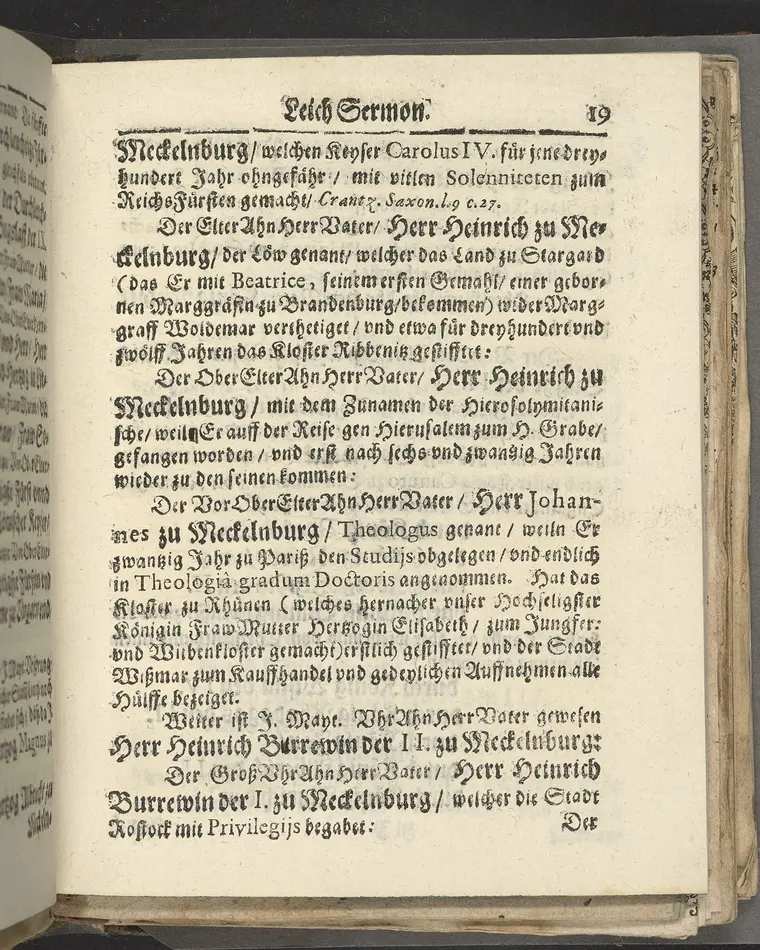 Leich Sermon. 19
Meckelnburg/ welchen Keyser Carolus IV. für jene drey-
hundert Jahr ohngefähr/ mit vitlen Solenniteten zum
ReichsFürsten gemacht/ Crantz. Saxon. l.9 c.27.
Der ElterAhnHerrVater/ Herr Heinrich zu Me-
ckelnburg/ der Löw genant/ welcher das Land zu Stargard
(das Er mit Beatrice, seinem ersten Gemahl/ einer gebor-
nen Marggräfin zu Brandenburg/ bekommen) wider Marg-
graff Woldemar verthetiget/ vnd etwa für dreyhundert vnd
zwölff Jahren das Kloster Ribbenitz gestifftet:
Der OberElterAhnHerrVater/ Herr Heinrich zu
Meckelnburg/ mit dem Zunamen der Hierosolymitani-
sche/ weiln Er auff der Reise gen Hierusalem zum H. Grabe/
gefangen worden/ vnd erst nach sechs vnd zwantzig Jahren
wieder zu den seinen kommen:
Der VorOberElterAhnHerrVater/ Herr Johan-
nes zu Meckelnburg/ Theologus genant/ weiln Er
zwantzig Jahr zu Pariß den Studijs obgelegen/ vnd endlich
in Theologiâ gradum Doctoris angenommen. Hat das
Kloster zu Rhünen (welches hernacher vnser Hochseligster
Königin Fraw Mutter Hertzogin Elisabeth/ zum Jungfer:
vnd Witbenkloster gemacht) erstlich gestifftet/ vnd der Stadt
Wißmar zum Kauffhandel vnd gedeylichen Auffnehmen alle
Hülffe bezeiget.
Weiter ist J. Mayt. VhrAhnHerrVater gewesen
Herr Heinrich Burrewin der II. zu Meckelnburg:
Der GroßVhrAhnHerrVater/ Herr Heinrich
Burrewin der I. zu Meckelnburg/ welcher die Stadt
Rostock mit Privilegijs begabet:
Der